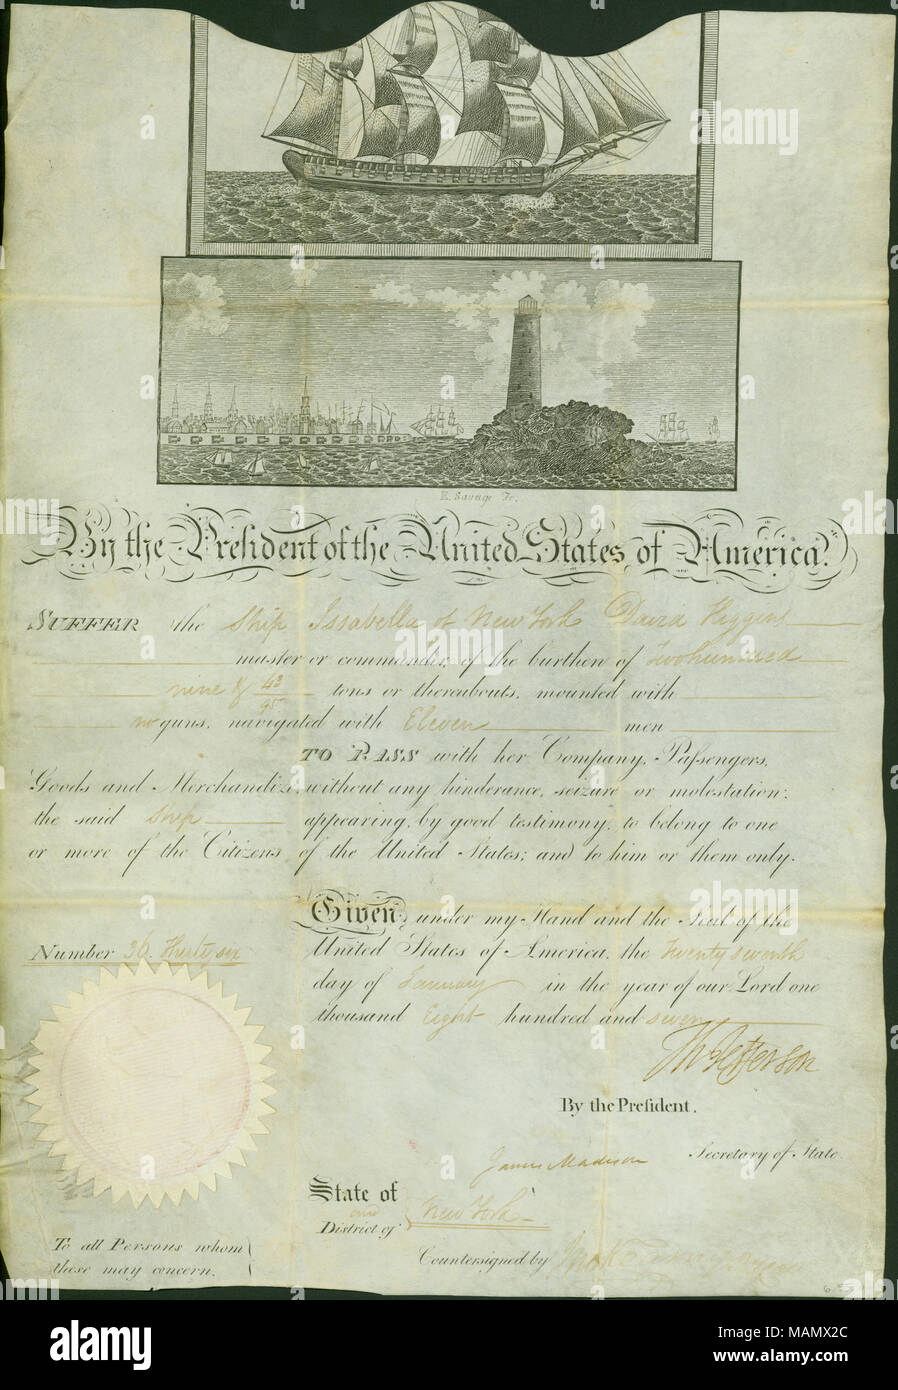 E. Savage Fc.
By the President of the United States of America.
SUFFER the Ship Issabella of New York David Higgins
master or commander, of the burthen of Two hundred
nine & 43/95 tons or thereabouts, mounted with
no guns, navigated with Eleven men
TO PASS with her Company, Passengers,
Goods and Merchandize without any hinderance, seizure or molestation;
the said Ship appearing, by good testimony, to belong to one
or more of the Citizens of the United States; and to him or them only.
Given, under my Hand and the Seal of the
United States of America, the twenty seventh
day of January in the year of our Lord one
thousand Eight hundred and seven
Number 36. Thirty six
Th Jefferson
By the President.
James Madison Secretary of State.
State of
District of New York
Countersigned by
To all Persons whom
these may concern.
alamy
Image ID: MAMX2C
www.alamy.com